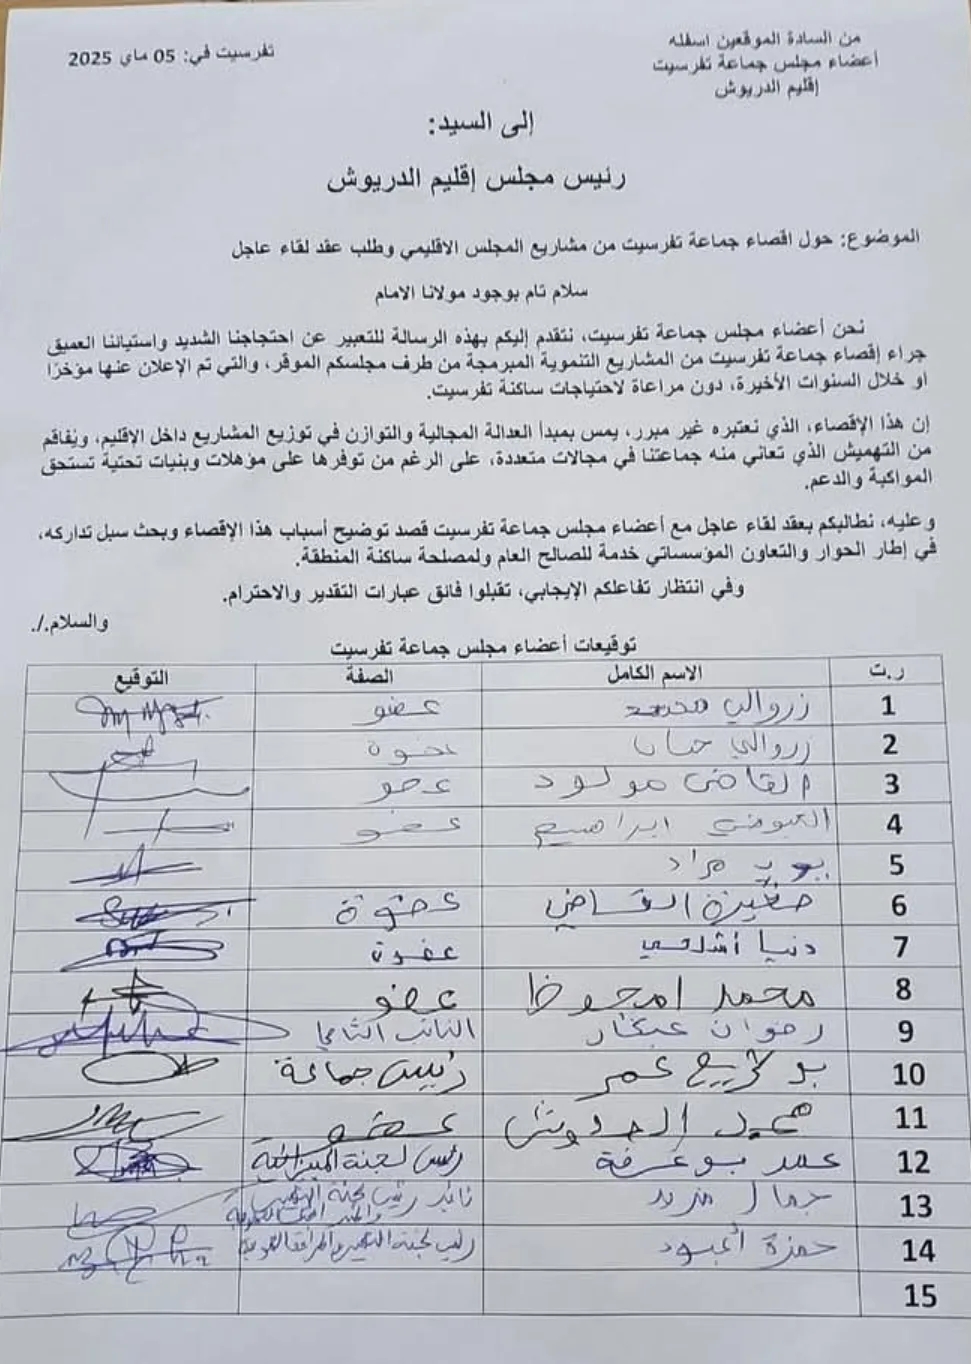 من السادة الموقعين اسفله
أعضاء مجلس جماعة تفرسيت
إقليم الدريوش
تفرسيت في: 05 ماي 2025
إلى السيد:
رئيس مجلس إقليم الدريوش
الموضوع: حول اقصاء جماعة تفرسيت من مشاريع المجلس الاقليمي وطلب عقد لقاء عاجل
سلام تام بوجود مولانا الامام
نحن أعضاء مجلس جماعة تفرسيت، نتقدم إليكم بهذه الرسالة للتعبير عن احتجاجنا الشديد واستيائنا العميق
جراء إقصاء جماعة تفرسيت من المشاريع التنموية المبرمجة من طرف مجلسكم الموقر، والتي تم الإعلان عنها مؤخرًا
او خلال السنوات الأخيرة، دون مراعاة لاحتياجات ساكنة تفرسيت.
إن هذا الإقصاء، الذي نعتبره غير مبرر، يمس بمبدأ العدالة المجالية والتوازن في توزيع المشاريع داخل الإقليم، ويُفاقم
من التهميش الذي تعاني منه جماعتنا في مجالات متعددة، على الرغم من توفرها على مؤهلات وبنيات تحتية تستحق
المواكبة والدعم.
وعليه، نطالبكم بعقد لقاء عاجل مع أعضاء مجلس جماعة تفرسيت قصد توضيح أسباب هذا الإقصاء وبحث سبل تداركه،
في إطار الحوار والتعاون المؤسساتي خدمة للصالح العام ولمصلحة ساكنة المنطقة.
وفي انتظار تفاعلكم الإيجابي، تقبلوا فائق عبارات التقدير والاحترام.
والسلام./.
توقيعات أعضاء مجلس جماعة تفرسيت
ر.ت الاسم الكامل الصفة التوقيع
1 زروالي محمد عضو
2 زروالي حنان عضوة
3 القاضي مولود عضو
4 ابراهيم عضو
5 مراد
6 صغيرة القاضي عضوة
7 دنيا عضوة
8 محمد عضو
9 رضوان النائب الثاني
10 عمر رئيس جماعة
11 عضو
12 بوعرفة رئيس لجنة الميزانية
13 جمال مزيد نائب رئيس لجنة
14 حمزة رئيس لجنة
15